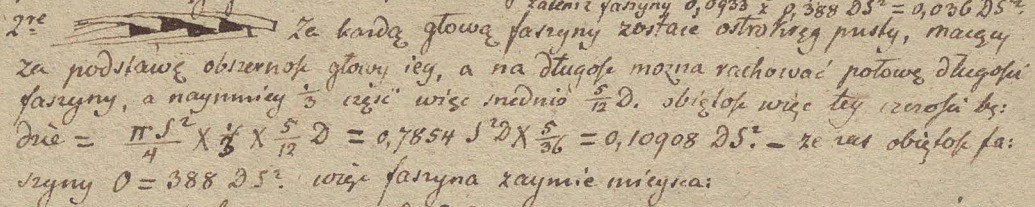 zatem z faszyny 0,0933 x 0,388 DS² = 0,036 DS².
2re Za każdą głową faszyny zostaie ostrokręg pusty, maiący
za podstawę obszerność głowy iey, a na długość można rachować połowę długości
faszyny, a naymniey 1/3 część więc średnio 5/12 D. obiętość więc tey części bę:
dzie = πS²/4 X 1/3 X 5/12 D = 0,7854 S²D X 5/36 = 0,10908 DS². – że zaś obiętość fa:
szyny O = 388 DS². więc faszyna zaymie mieysca: